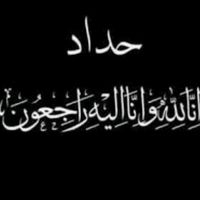 حداد
انا لله وانا اليه راجعون